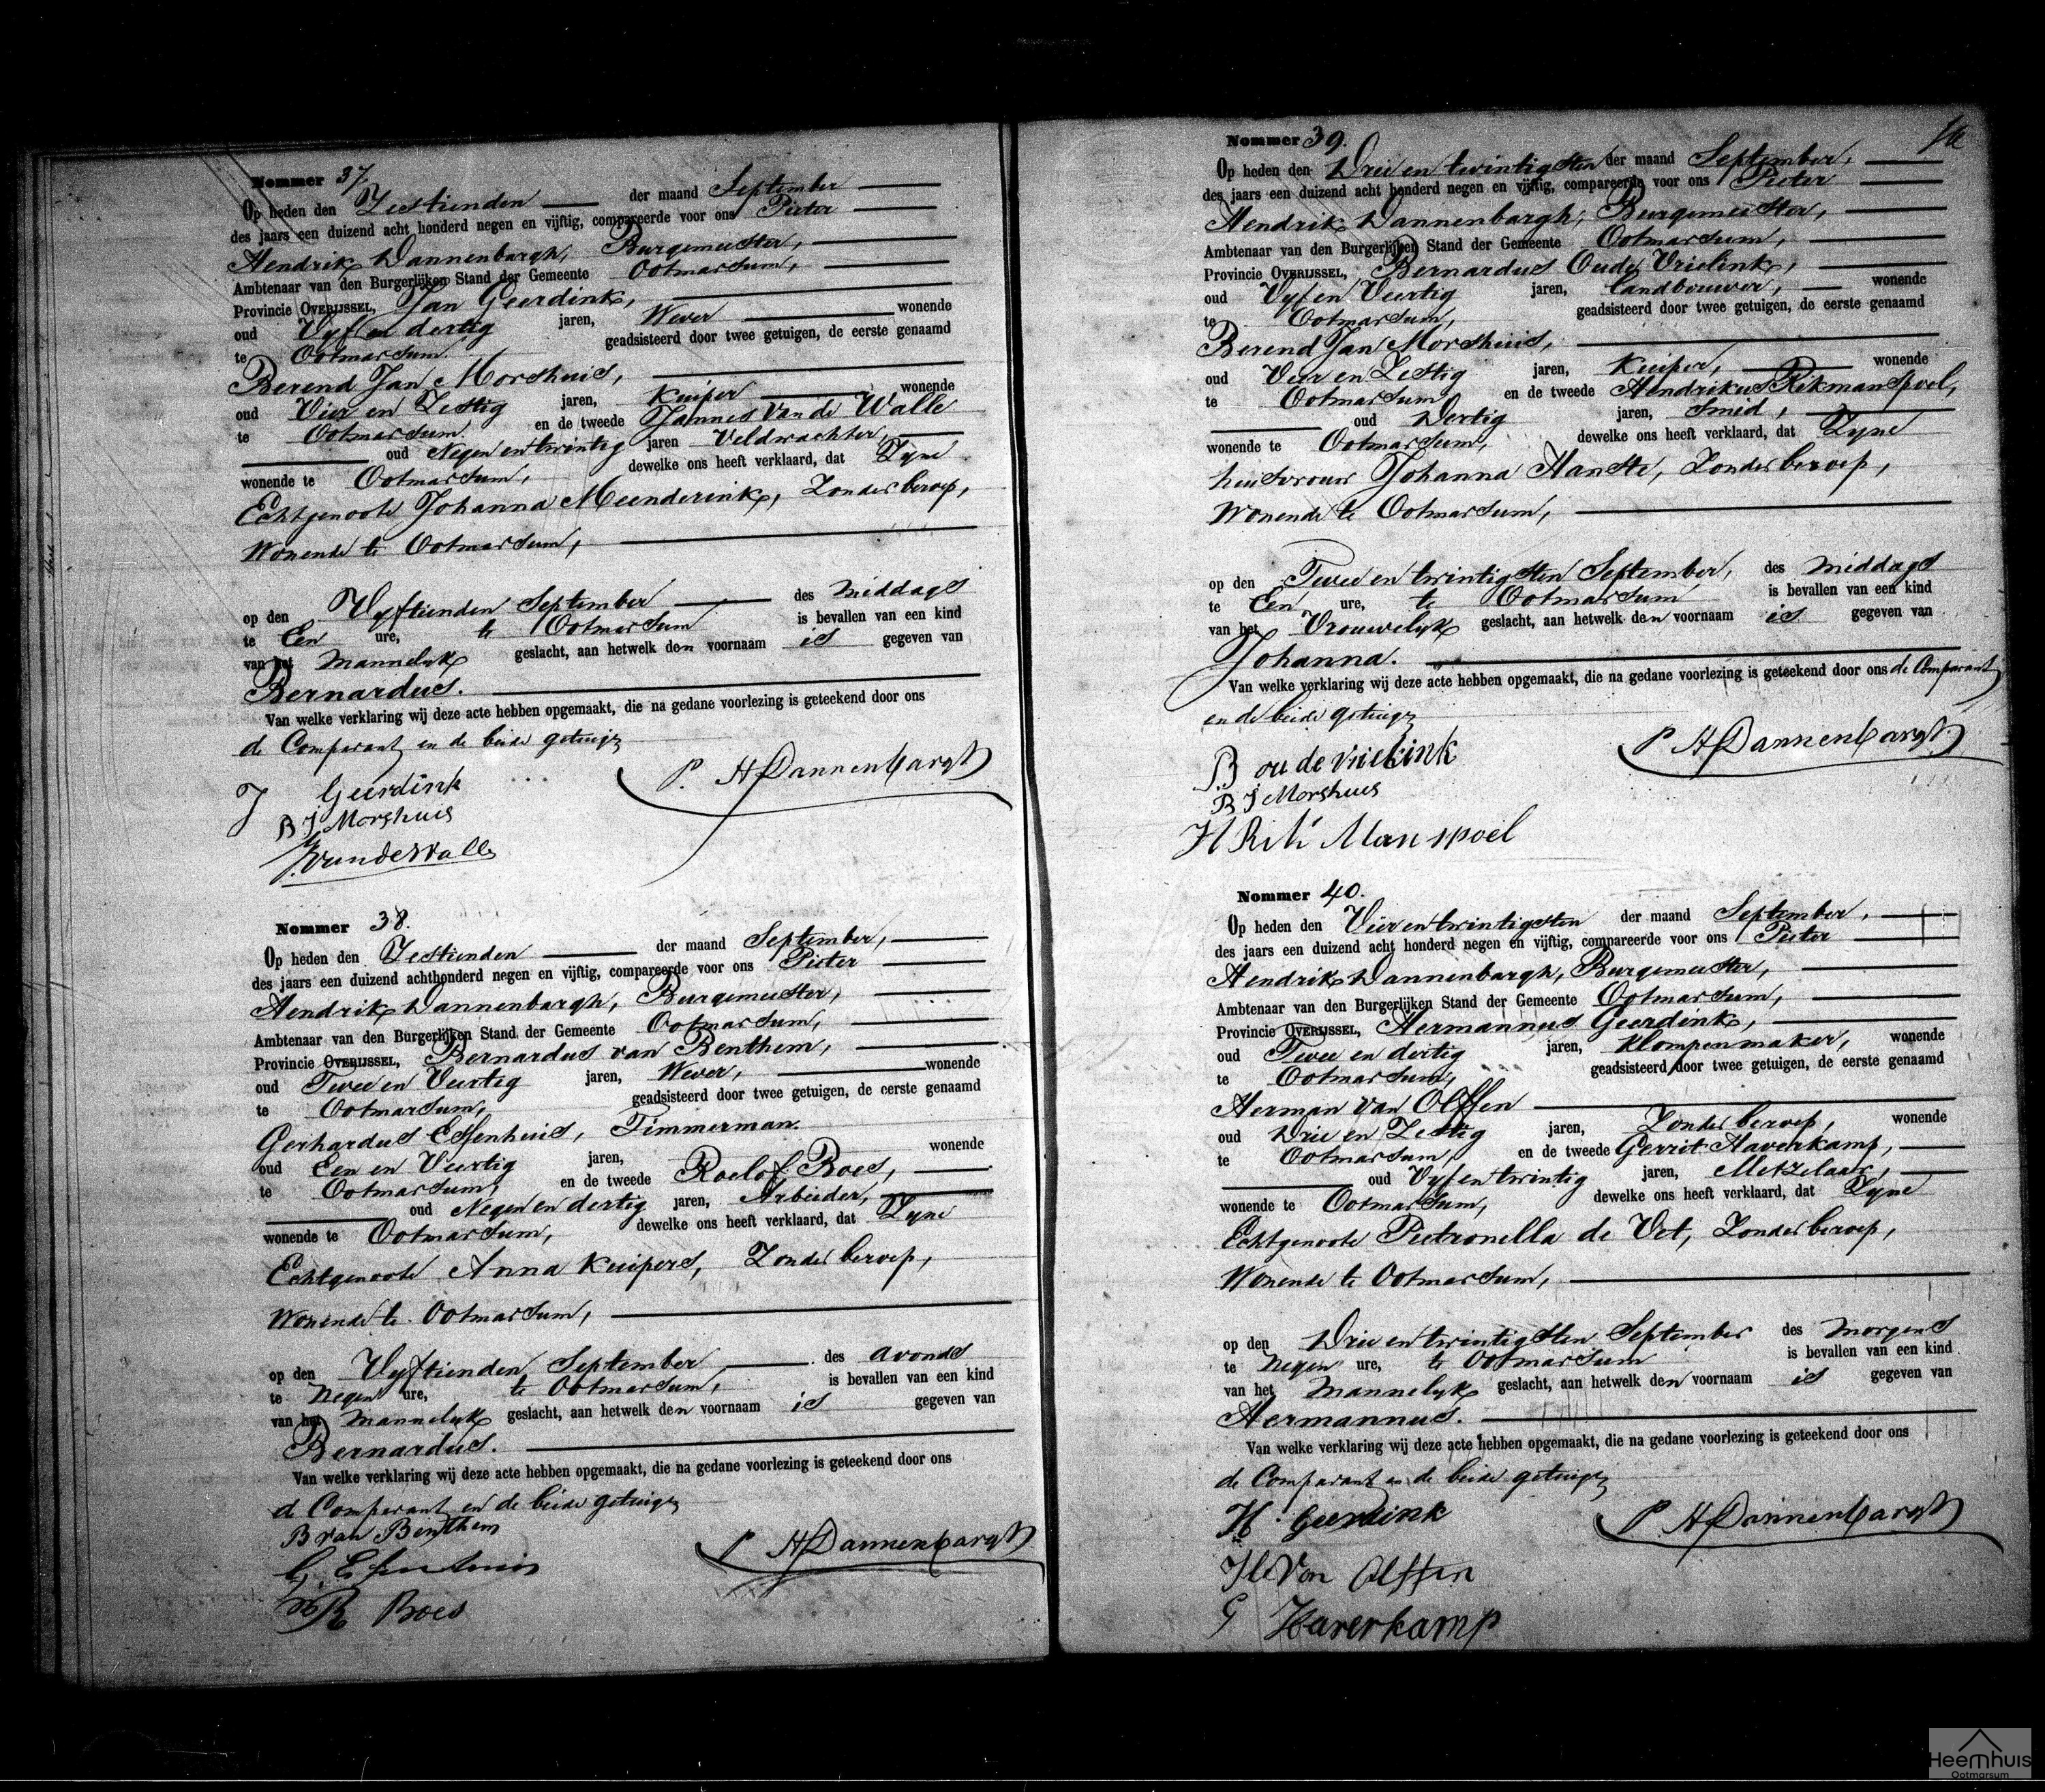 Nommer 37.
Op heden den Zestienden der maand September
des jaars een duizend acht honderd negen en vijftig, compareerde voor ons Pieter
Hendrik Dannenbargh, Burgemeester,
Ambtenaar van den Burgerlijken Stand der Gemeente Ootmarsum,
Provincie OVERIJSSEL, Jan Geerdink,
oud Vyf en dertig jaren, Wever wonende
te Ootmarsum. geadsisteerd door twee getuigen, de eerste genaamd
Berend Jan Morshuis,
oud Vier en Zestig jaren, Kuiper wonende
te Ootmarsum. en de tweede Jannes van de Walle
oud Negen en twintig jaren Veldwachter,
wonende te Ootmarsum, dewelke ons heeft verklaard, dat Zyne
Echtgenoote Johanna Meenderink, Zonder beroep,
Wonende te Ootmarsum,
op den Vyftienden September des middags
te Een ure, te Ootmarsum is bevallen van een kind
van het Mannelyk geslacht, aan hetwelk den voornaam is gegeven van
Bernardus.
Van welke verklaring wij deze acte hebben opgemaakt, die na gedane voorlezing is geteekend door ons
de Comparant en de beide getuigen
J Geerdink P. H Dannenbargh
B J Morshuis
J. van de Walle
Nommer 38.
Op heden den Zestienden der maand September,
des jaars een duizend achthonderd negen en vijftig, compareerde voor ons Pieter
Hendrik Dannenbargh, Burgemeester,
Ambtenaar van den Burgerlijken Stand der Gemeente Ootmarsum,
Provincie OVERIJSSEL, Bernardus van Benthem,
oud Twee en Veertig jaren, Wever, wonende
te Ootmarsum, geadsisteerd door twee getuigen, de eerste genaamd
Gerhardus Essenhuis, Timmerman.
oud Een en Veertig jaren, wonende
te Ootmarsum, en de tweede Roelof Roes,
oud Negen en dertig jaren, Arbeider,
wonende te Ootmarsum, dewelke ons heeft verklaard, dat Zyne
Echtgenoote Anna Kuipers, Zonder beroep,
Wonende te Ootmarsum,
op den Vyftienden September des avonds
te Negen ure, te Ootmarsum, is bevallen van een kind
van het Mannelyk geslacht, aan hetwelk den voornaam is gegeven van
Bernardus.
Van welke verklaring wij deze acte hebben opgemaakt, die na gedane voorlezing is geteekend door ons
de Comparant en de beide getuigen
B van Benthem
P H Dannenbargh
G. Essenhuis
R Roes
Nommer 39.
Op heden den Drie en twintigsten der maand September,
des jaars een duizend acht honderd negen en vijftig, compareerde voor ons Pieter
Hendrik Dannenbargh, Burgemeester,
Ambtenaar van den Burgerlijken Stand der Gemeente Ootmarsum,
Provincie OVERIJSSEL, Bernardus Oude Vrielink,
oud Vyf en Veertig jaren, Landbouwer, wonende
te Ootmarsum, geadsisteerd door twee getuigen, de eerste genaamd
Berend Jan Morshuis,
oud Vier en Zestig jaren, Kuiper, wonende
te Ootmarsum, en de tweede Hendrikus Rikmanspoel,
oud Dertig jaren, Smid,
wonende te Ootmarsum, dewelke ons heeft verklaard, dat Zyne
huisvrouw Johanna Hanste, Zonder beroep,
Wonende te Ootmarsum,
op den Twee en twintigsten September, des middags
te Een ure, te Ootmarsum is bevallen van een kind
van het Vrouwelyk geslacht, aan hetwelk den voornaam is gegeven van
Johanna.
Van welke verklaring wij deze acte hebben opgemaakt, die na gedane voorlezing is geteekend door ons de Comparant
en de beide getuigen
P H Dannenbargh
B oude vrielink
B J Morshuis
H Rik Manspoel
Nommer 40.
Op heden den Vier en twintigsten der maand September,
des jaars een duizend acht honderd negen en vijftig, compareerde voor ons Pieter
Hendrik Dannenbargh, Burgemeester,
Ambtenaar van den Burgerlijken Stand der Gemeente Ootmarsum,
Provincie OVERIJSSEL, Hermannus Geerdink,
oud Twee en dertig jaren, Klompenmaker, wonende
te Ootmarsum, geadsisteerd door twee getuigen, de eerste genaamd
Herman van Olffen
oud Drie en Zestig jaren, Zonder beroep, wonende
te Ootmarsum, en de tweede Gerrit Haverkamp,
oud Vyf en twintig jaren, Metzelaar,
wonende te Ootmarsum, dewelke ons heeft verklaard, dat Zyne
Echtgenoote Pietronella de Vet, Zonder beroep,
Wonende te Ootmarsum,
op den Drie en twintigsten September des morgens
te Negen ure, te Ootmarsum is bevallen van een kind
van het Mannelyk geslacht, aan hetwelk den voornaam is gegeven van
Hermannus.
Van welke verklaring wij deze acte hebben opgemaakt, die na gedane voorlezing is geteekend door ons
de Comparant en de beide getuigen
H Geerdink P H Dannenbargh
H Von Olffen
G Haverkamp
Heemhuis
Ootmarsum